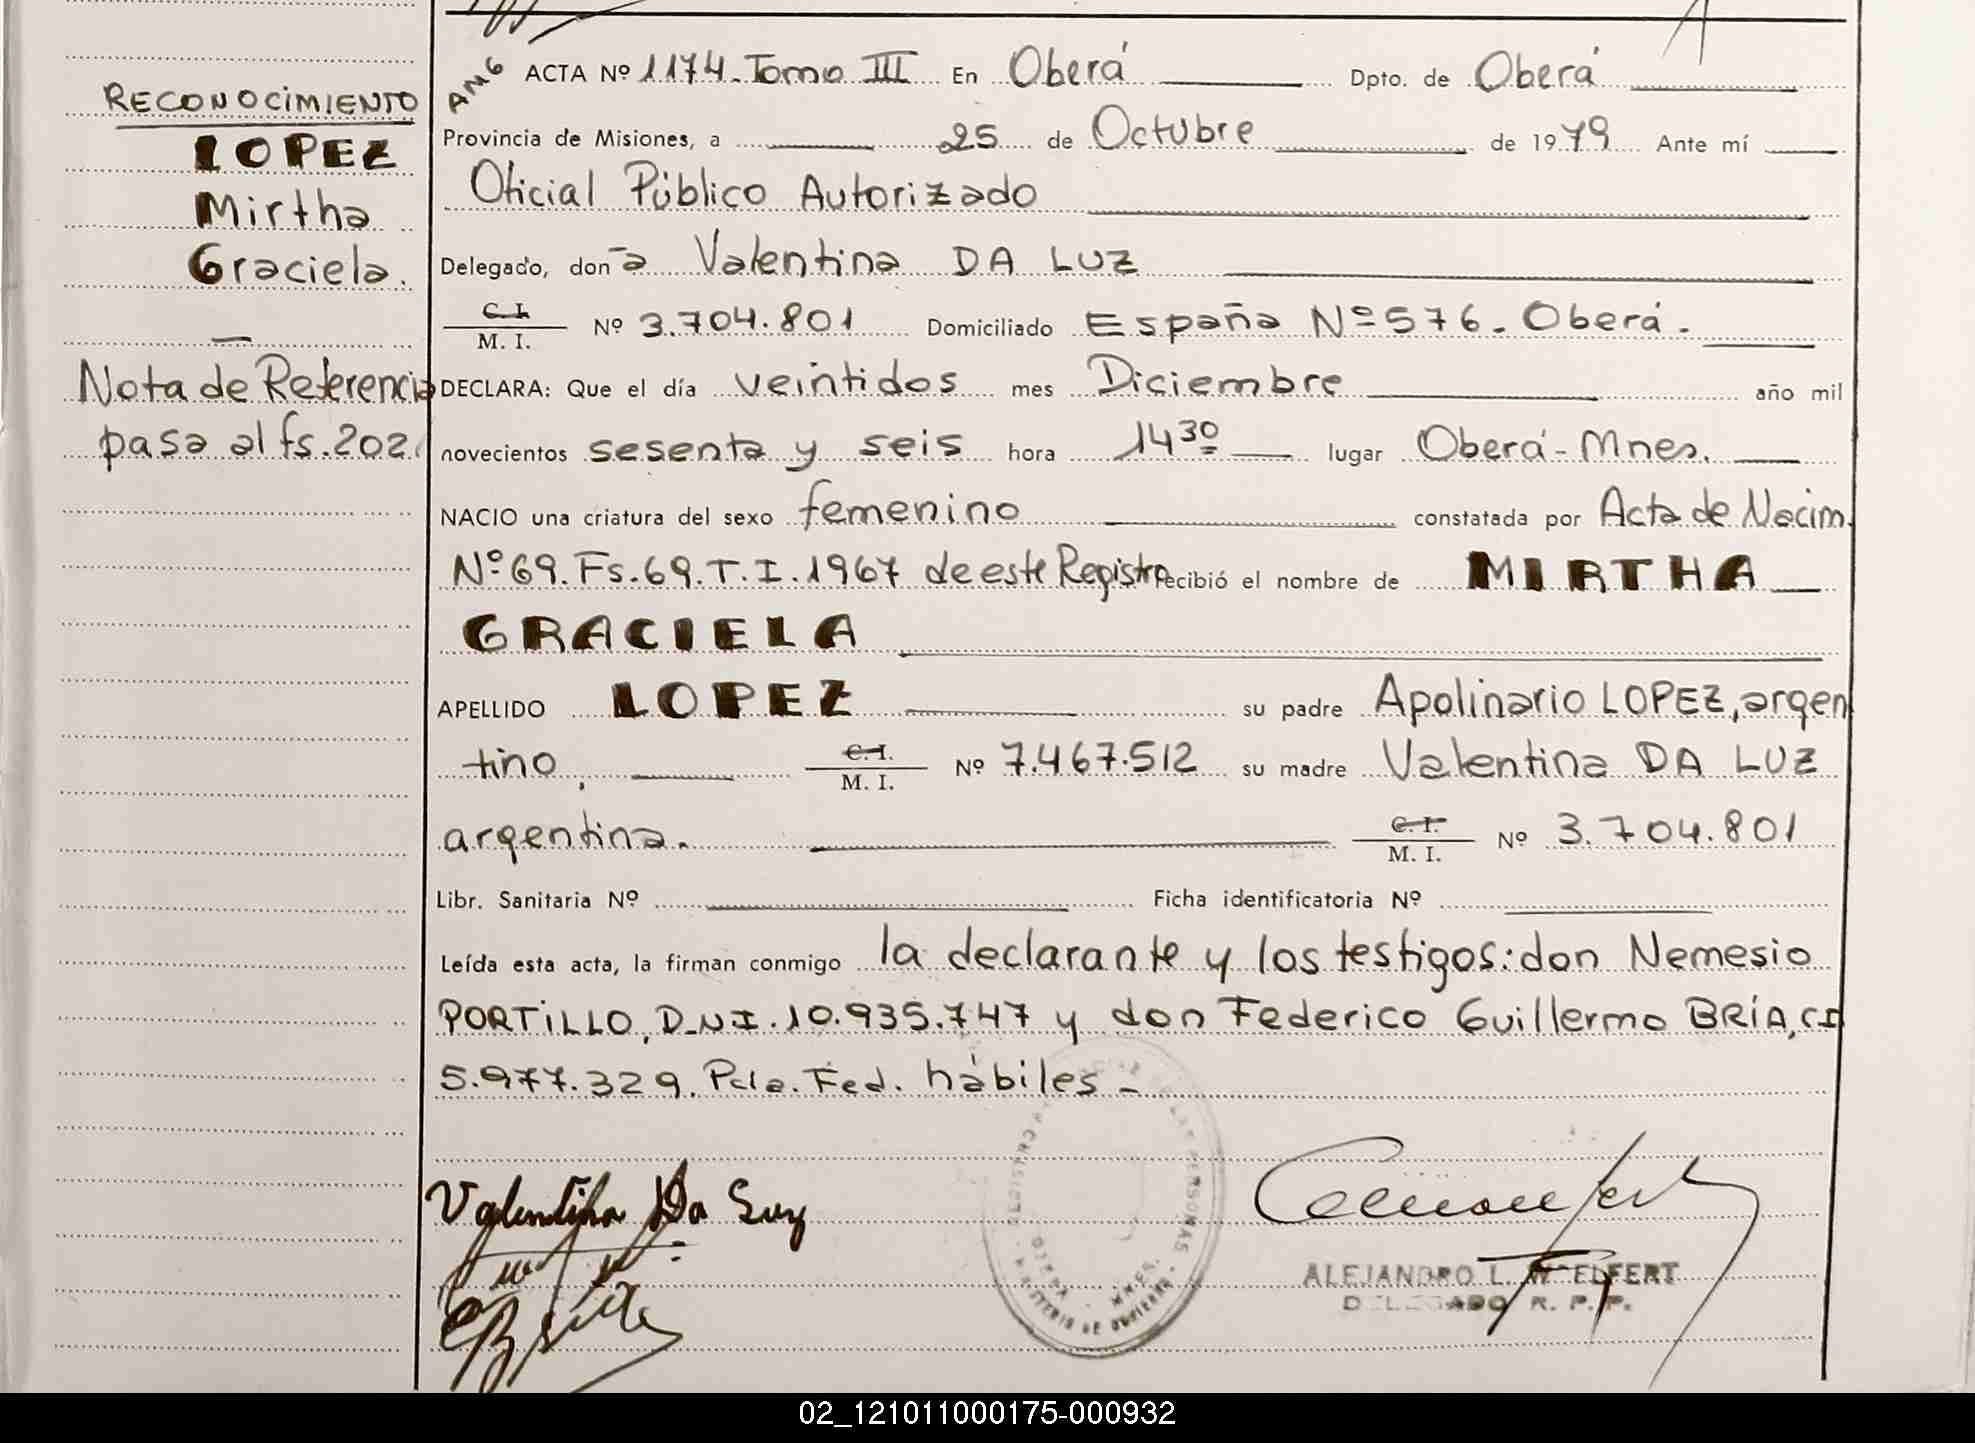 RECONOCIMIENTO
LOPEZ
Mirtha
Graciela.
Nota de Referencia
pasa al fs. 202
AMG
ACTA Nº 1174. Tomo III En Oberá Dpto. de Oberá
Provincia de Misiones, a 25 de Octubre de 1979 Ante mí
Oficial Público Autorizado
Delegado, doña Valentina DA LUZ
C.I.
M. I. Nº 3.704.801 Domiciliado España Nº 576. Oberá.
DECLARA: Que el día veintidos mes Diciembre año mil
novecientos sesenta y seis hora 14 30 lugar Oberá-Mnes.
NACIO una criatura del sexo femenino constatada por Acta de Nacim.
Nº 69. Fs. 69. T. I. 1967 de este Registro recibió el nombre de MIRTHA
GRACIELA
APELLIDO LOPEZ su padre Apolinario LOPEZ, argen
tino, C.I. M. I. Nº 7.467.512 su madre Valentina DA LUZ
argentina. C.I. M. I. Nº 3.704.801
Libr. Sanitaria Nº Ficha identificatoria Nº
Leída esta acta, la firman conmigo la declarante y los testigos: don Nemesio
PORTILLO, D.N.I. 10.935.747 y don Federico Guillermo BRÍA, CI
5.977.329. Pcia. Fed. hábiles -
Valentina Da Luz
ALEJANDRO L.
DELEGADO R. P. P.
02_121011000175-000932